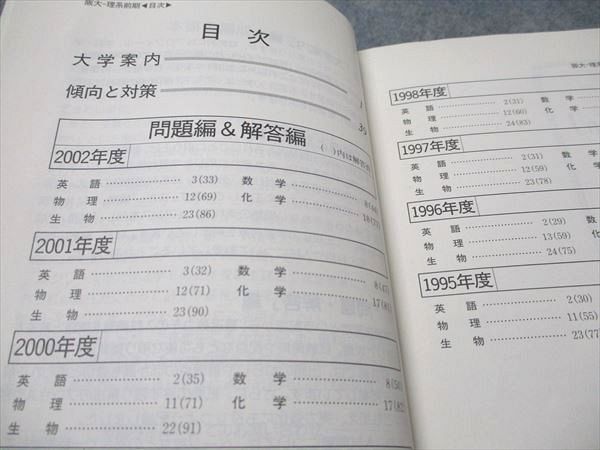 阪大-理系前期◀目次▶
目次
大学案内
傾向と対策
問題編&解答編
2002年度
英語 3(33) 数学
物理 12(69) 化学
生物 23(86)
2001年度
英語 3(32) 数学
物理 12(71) 化学
生物 23(90)
2000年度
英語 2(35) 数学
物理 11(71) 化学
生物 22(91)
1998年度
英語 2(31) 数学
物理 12(60) 化
生物 24(83)
1997年度
英語 2(31) 数
物理 12(59) 化
生物 23(78)
1996年度
英語 2(29)
物理 13(59)
生物 24(75)
1995年度
英語 2(30)
物理 11(55)
生物 23(77